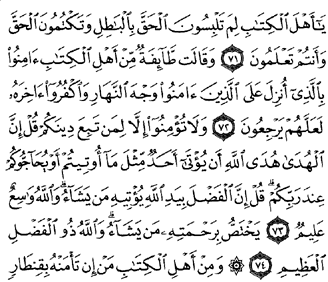 يَـٰٓأَهْلَ ٱلْكِتَـٰبِ لِمَ تَلْبِسُونَ ٱلْحَقَّ بِٱلْبَـٰطِلِ وَتَكْتُمُونَ ٱلْحَقَّ
وَأَنتُمْ تَعْلَمُونَ ٧١ وَقَالَت طَّآئِفَةٌ مِّنْ أَهْلِ ٱلْكِتَـٰبِ ءَامِنُوا۟
بِٱلَّذِىٓ أُنزِلَ عَلَى ٱلَّذِينَ ءَامَنُوا۟ وَجْهَ ٱلنَّهَارِ وَٱكْفُرُوٓا۟ ءَاخِرَهُۥ
لَعَلَّهُمْ يَرْجِعُونَ ٧٢ وَلَا تُؤْمِنُوٓا۟ إِلَّا لِمَن تَبِعَ دِينَكُمْ قُلْ إِنَّ
ٱلْهُدَىٰ هُدَى ٱللَّهِ أَن يُؤْتَىٰٓ أَحَدٌ مِّثْلَ مَآ أُوتِيتُمْ أَوْ يُحَآجُّوكُمْ
عِندَ رَبِّكُمْ ۗ قُلْ إِنَّ ٱلْفَضْلَ بِيَدِ ٱللَّهِ يُؤْتِيهِ مَن يَشَآءُ ۗ وَٱللَّهُ وَٰسِعٌ
عَلِيمٌ ٧٣ يَخْتَصُّ بِرَحْمَتِهِۦ مَن يَشَآءُ ۗ وَٱللَّهُ ذُو ٱلْفَضْلِ
ٱلْعَظِيمِ ٧٤ ۞ وَمِنْ أَهْلِ ٱلْكِتَـٰبِ مَنْ إِن تَأْمَنْهُ بِقِنطَارٍ